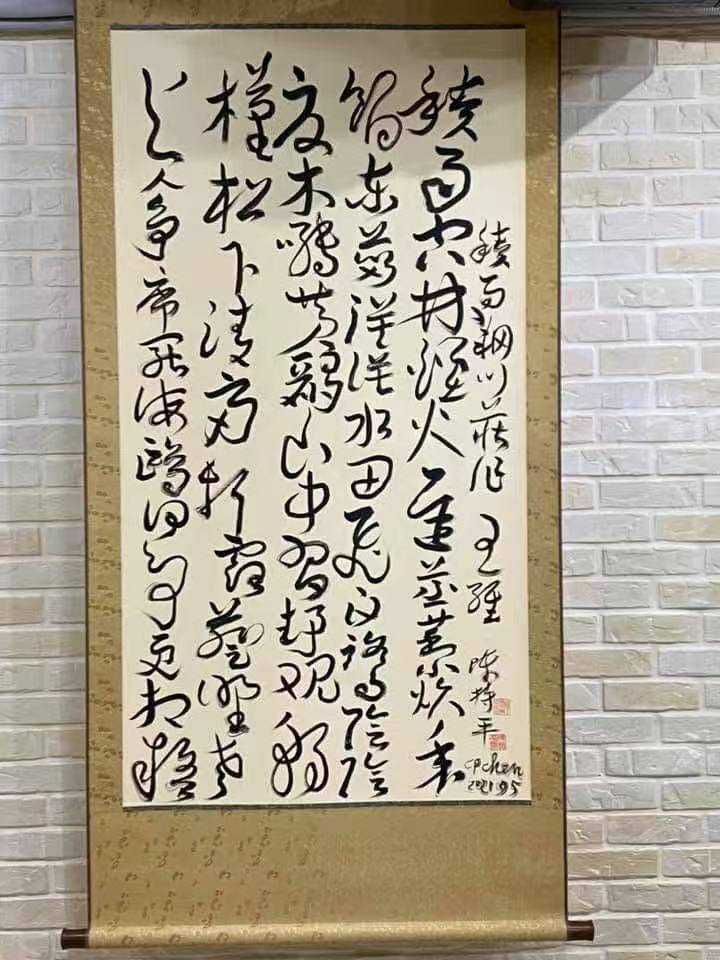 積雨輞川莊作 王維 陳持平
CP chen
2021.9.5
積雨空林煙火遲蒸藜炊黍
餉東菑漠漠水田飛白鷺陰陰
夏木囀黃鸝山中習靜觀朝
槿松下清齋折露葵野老
與人爭席罷海鷗何事更相疑